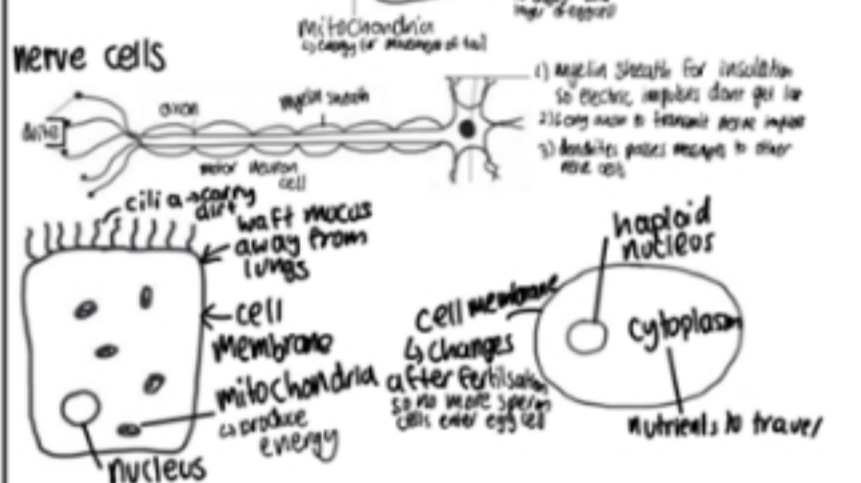 mitochondria
layer of egg cell
nerve cells
axon
myelin sheath
motor neuron
cell
1) myelin sheath for insulation
so electric impulses don't get
2) long axon to transmit nerve impulse
3) dendrites passes messages to other
nerve cells
cilia → carry
dirt
waft mucus
away from
lungs
cell
membrane
mitochondria
↳ produce
energy
nucleus
haploid
nucleus
cell membrane
↳ changes
after fertilisation
so no more sperm
cells enter egg cell
cytoplasm
nutrients to travel